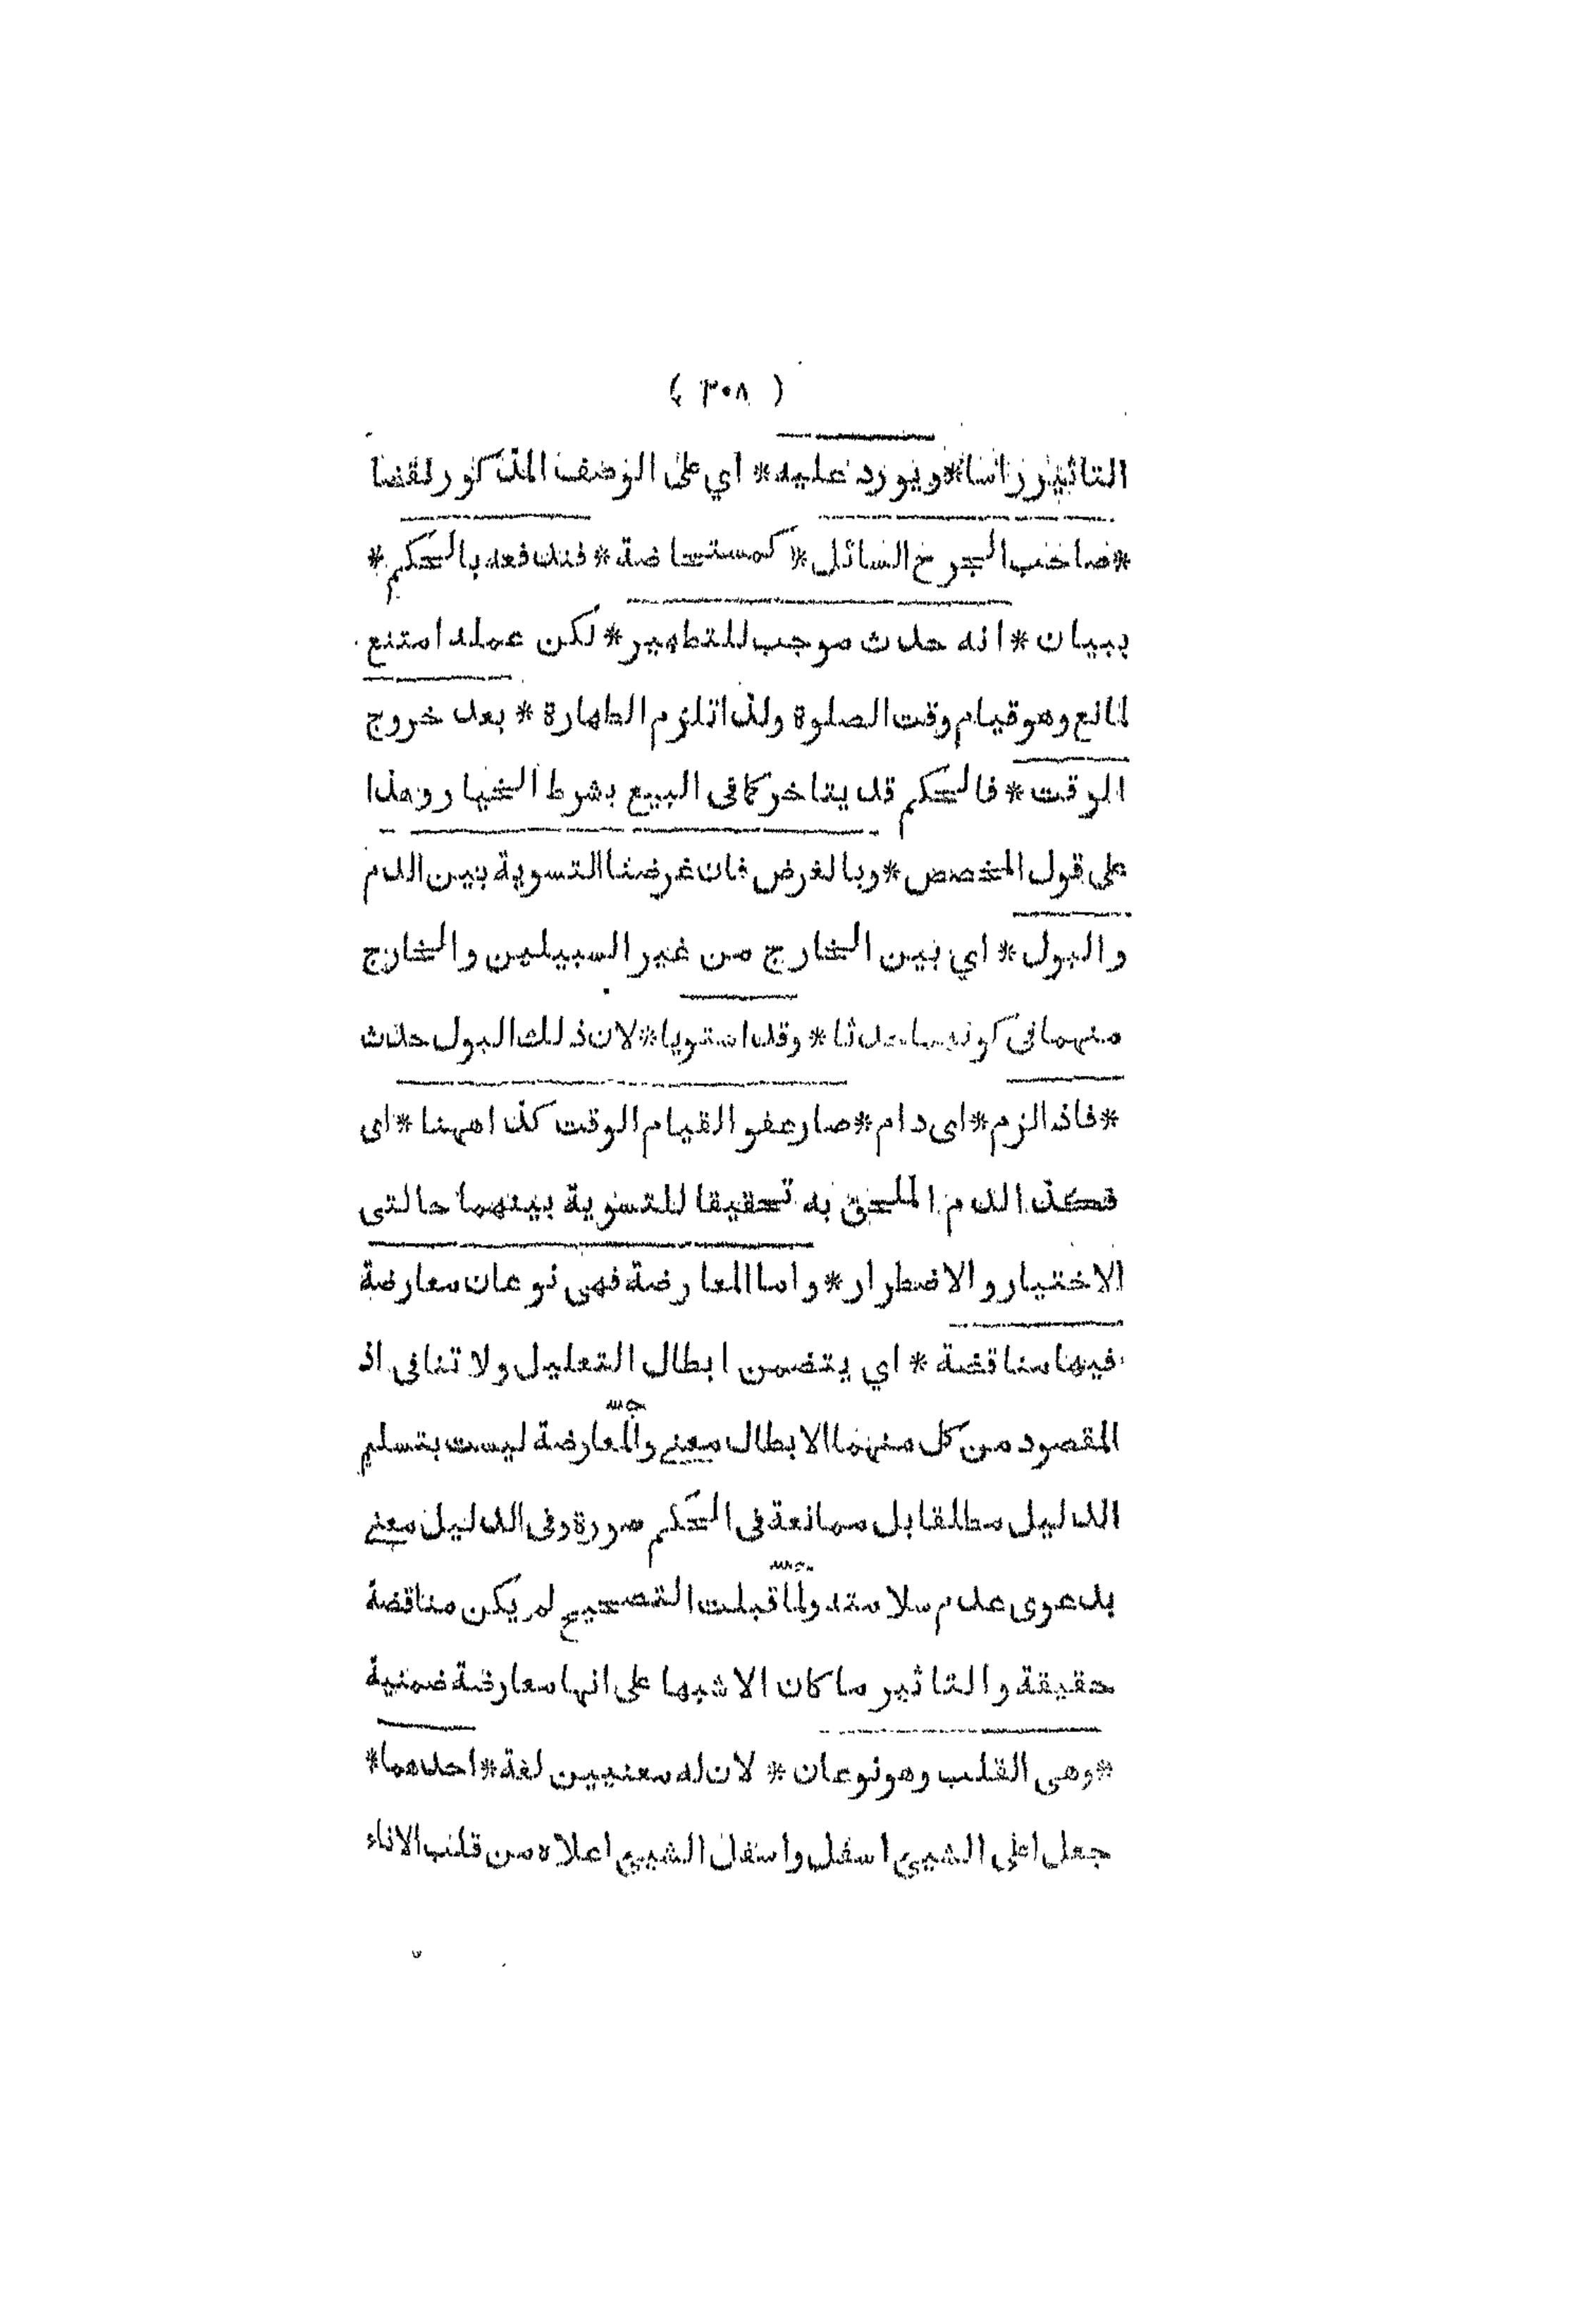 ( ٣٠٨ )
التاثير راسا*ويورد عليه* اي على الوصف المذكور نقضا
*صاحب الجرح السائل* كمستحاضة* فندفعه بالحكم*
ببيان* انه حدث موجب للتطهير* لكن عمله امتنع
لمانع وهو قيام وقت الصلوة ولذا تلزم الطهارة * بعد خروج
الوقت* فالحكم قد يتاخر كما فى البيع بشرط الخيار وهذا
على قول المخصص*وبالغرض فان غرضنا التسوية بين الدم
والبول* اي بين الخارج من غير السبيلين والخارج
منهما فى كونهما حدثا* وقد استويا*لان ذلك البول حدث
*فاذا لزم*اى دام*صار عفوا لقيام الوقت كذا ههنا*اى
فكذا الدم الملحق به تحقيقا للتسوية بينهما حالتى
الاختيار والاضطرار* واما المعارضة فهى نوعان معارضة
فيها مناقضة * اي يتضمن ابطال التعليل ولا تنافى اذ
المقصود من كل منهما الابطال معنے والمعارضة ليست بتسليم
الدليل مطلقا بل ممانعة فى الحكم صورة وفى الدليل معنے
بدعوى عدم سلامته ولما قبلت التصحيح لم يكن مناقضة
حقيقة والتاثير ما كان الا شبها على انها معارضة ضمنية
*وهى القلب وهو نوعان * لان له معنيين لغة*احدهما*
جعل اعلى الشيئ اسفل واسفل الشيئ اعلاه من قلب الاناء